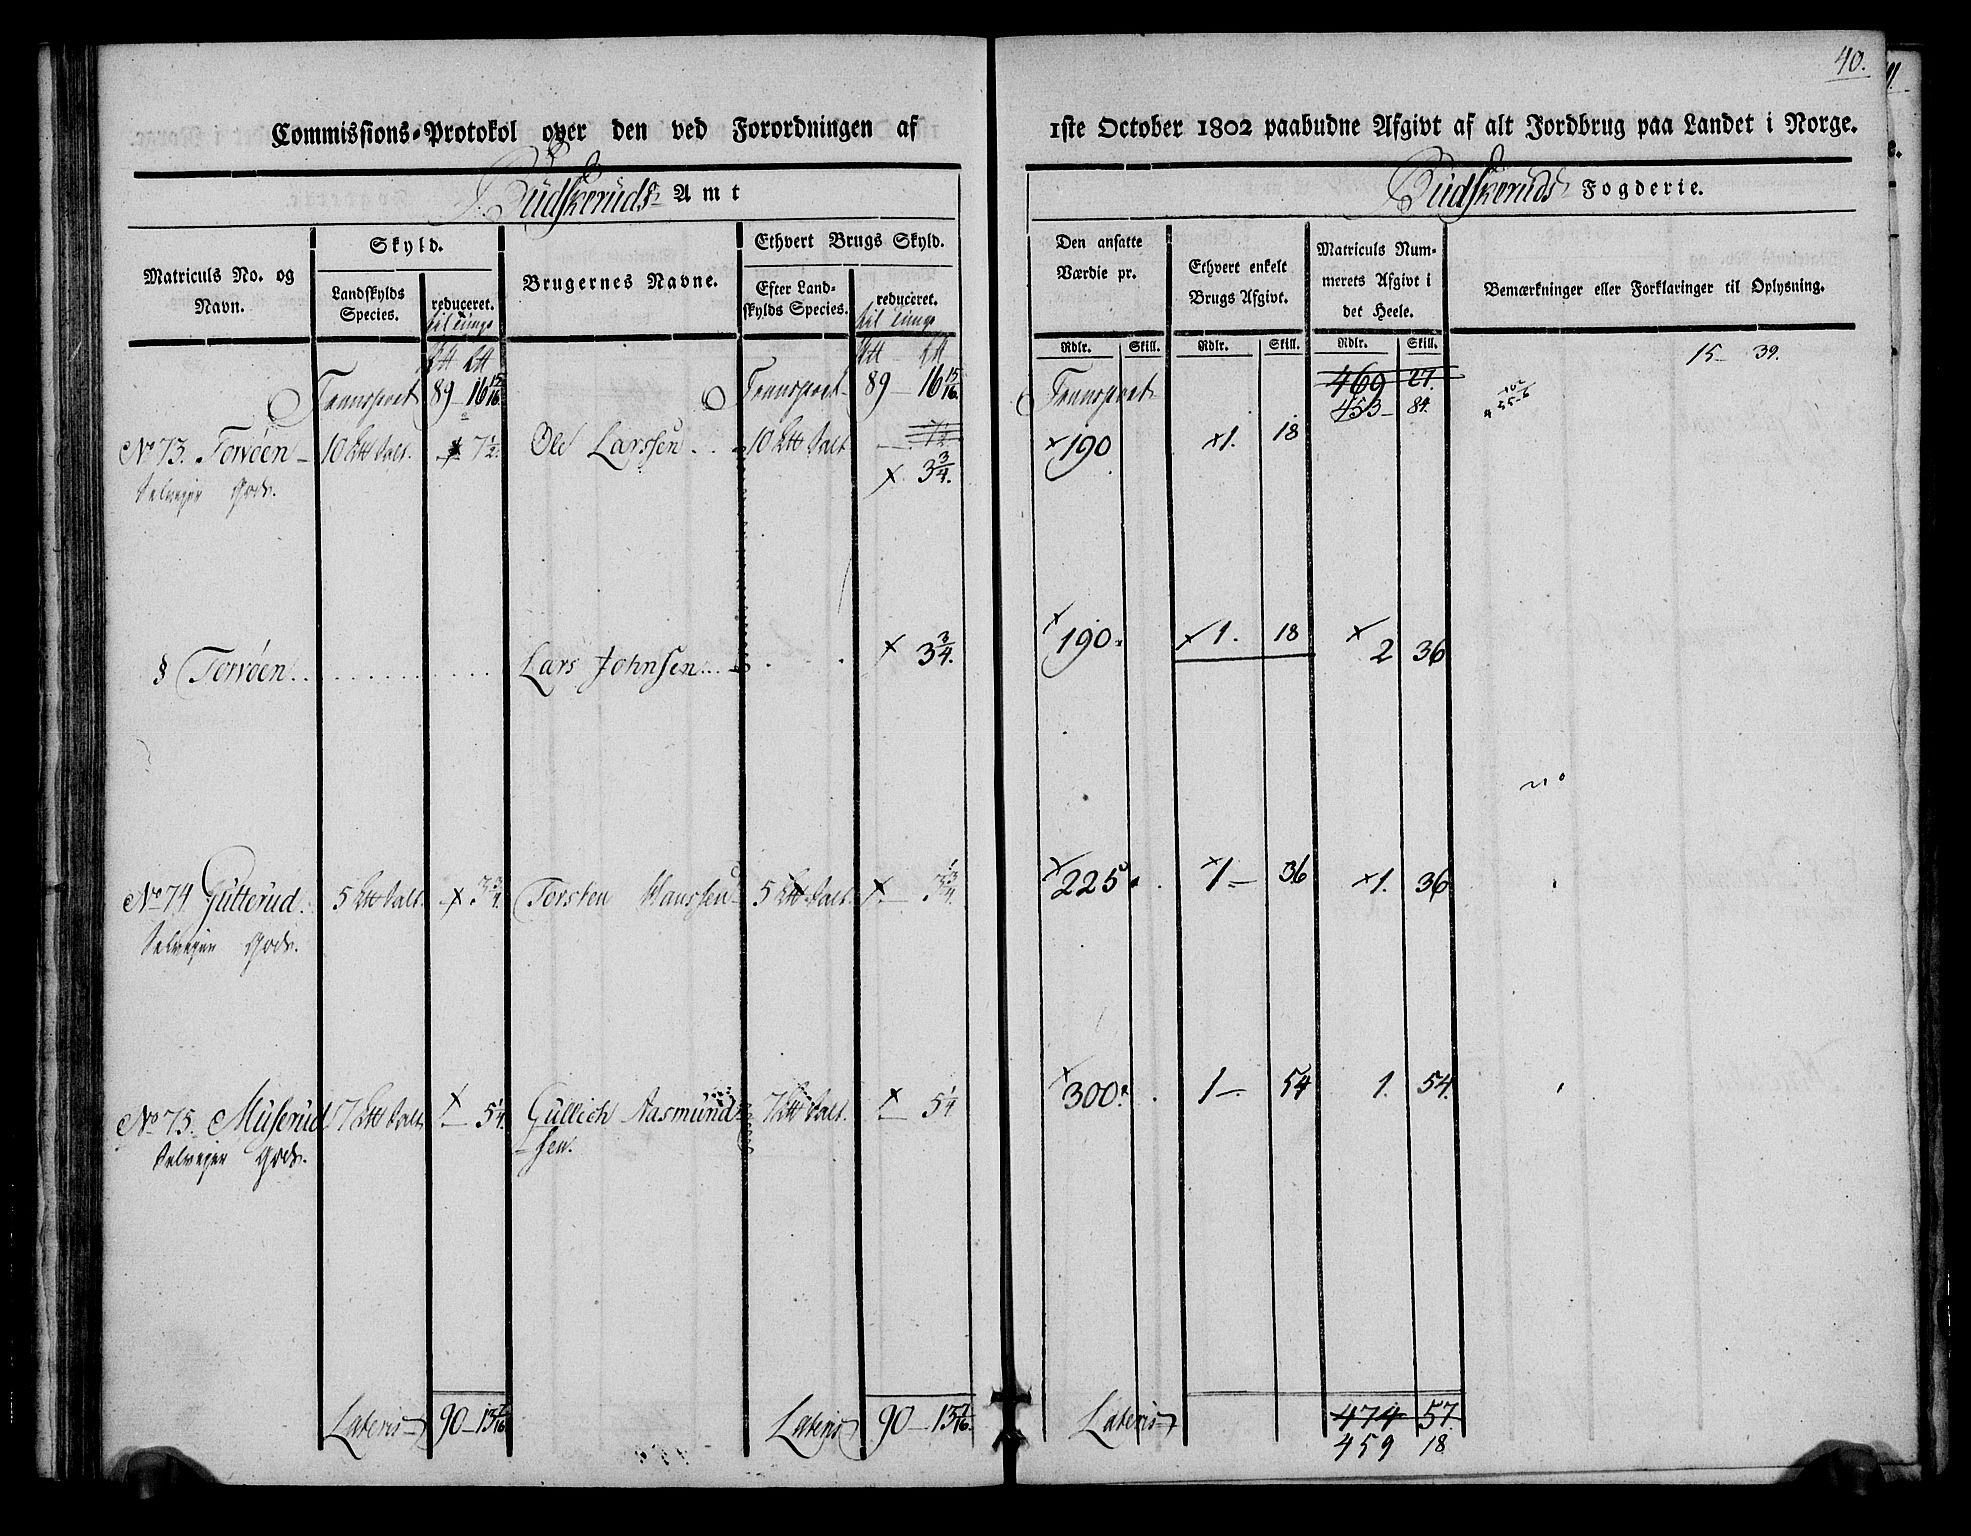 40.
Commissions-Protokol over den ved Forordningen af 1ste October 1802 paabudne Afgivt af alt Jordbrug paa Landet i Norge.
Budskeruds Amt
Budskeruds Fogderie.
Matriculs No. og Navn.
Skyld.
Landskylds Species.
reduceret.
til Tunge
Brugernes Navne.
Ethvert Brugs Skyld.
Efter Landskylds Species.
reduceret.
til Tunge
Den ansatte Værdie pr.
Ethvert enkelt Brugs Afgivt.
Matriculs Nummerets Afgivt i det Heele.
Bemærkninger eller Forklaringer til Oplysning.
Rdlr. Skill. Rdlr. Skill. Rdlr. Skill.
15 39.
Transport 89 – 16 15/16. Transport 89 – 16 15/16. Transport 469 27.
453 – 84.
No 73. Torvöen 10 Ltt Salt. 7 1/2. Ole Larssen 10 Ltt Salt 7 1/2. x 190 x 1. 18
Selveyer Gods. x 3 3/4.
§ Torvöen Lars Johnsen x 3 3/4. x 190. x 1. 18 x 2 36
No 74 Gutterud. 5 Ltt Salt. x 3 3/4. Torsten Hanssen 5 Ltt Salt. x 3 3/4. x 225 x 1 – 36 x 1. 36
Selveyer Gods.
No 75. Muserud 7 Ltt Salt x 5 1/4. Gullich Aasmund- 7 Ltt Salt. x 5 1/4 x 300. 1 – 54 1. 54.
Selveyer Gods. sen.
Lateris 90 – 13 7/16 Lateris 90 – 13 7/16. Lateris 474 57.
459 18